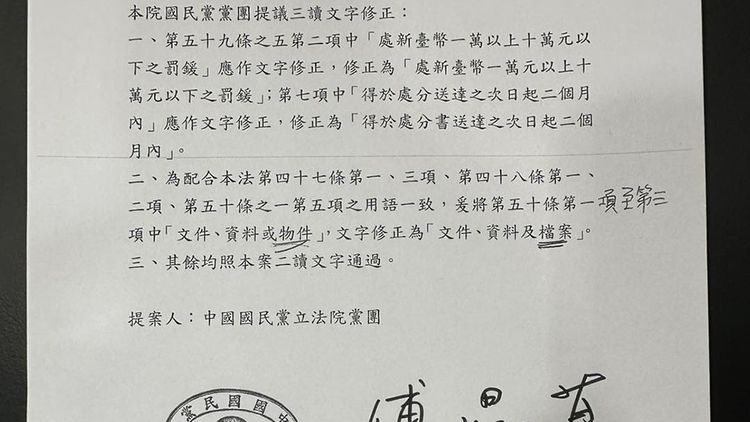 本院國民黨黨團提議三讀文字修正：
一、第五十九條之五第二項中「處新臺幣一萬以上十萬元以
下之罰鍰」應作文字修正，修正為「處新臺幣一萬元以上十
萬元以下之罰鍰」；第七項中「得於處分送達之次日起二個月
內」應作文字修正，修正為「得於處分書送達之次日起二個
月內」。
二、為配合本法第四十七條第一、三項、第四十八條第一、
二項、第五十條之一第五項之用語一致，爰將第五十條第一項至第三
項中「文件、資料或物件」，文字修正為「文件、資料及檔案」。
三、其餘均照本案二讀文字通過。
提案人：中國國民黨立法院黨團
中國國民黨
傅